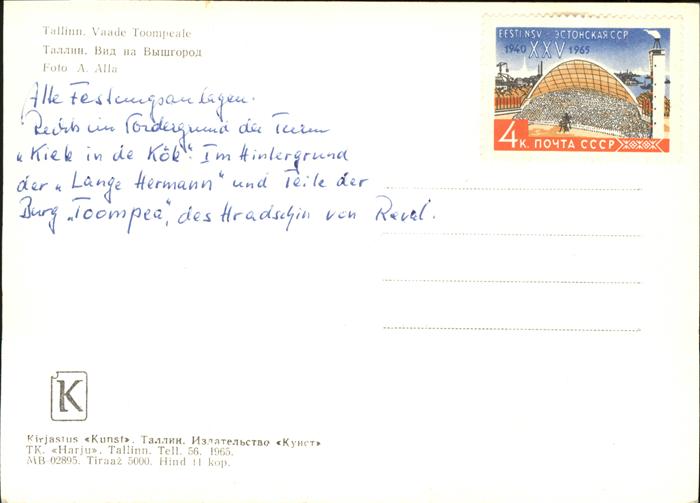 Tallinn. Vaade Toompeale
Таллин. Вид на Вышгород
Foto A. Alla
EESTI NSV - ЭСТОНСКАЯ ССР
1940 XXV 1965
4 к. ПОЧТА СССР
Alte Festungsanlagen.
Rechts im Vordergrund der Turm
„Kiek in de Kök". Im Hintergrund
der „Lange Hermann" und Teile der
Burg „Toompea", des Hradschin von Reval.
K
Kirjastus «Kunst», Таллин, Издательство «Кунст»
TK. «Harju», Tallinn. Tell. 56. 1965.
MB-02895. Tiraaž 5000. Hind 11 kop.